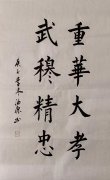 重華大孝
武穆精忠